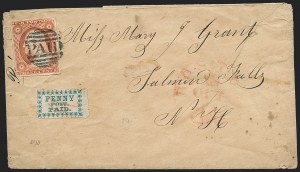 PAID
Miss Mary J Grant
Salmon Falls
N H
PENNY
POST
PAID.